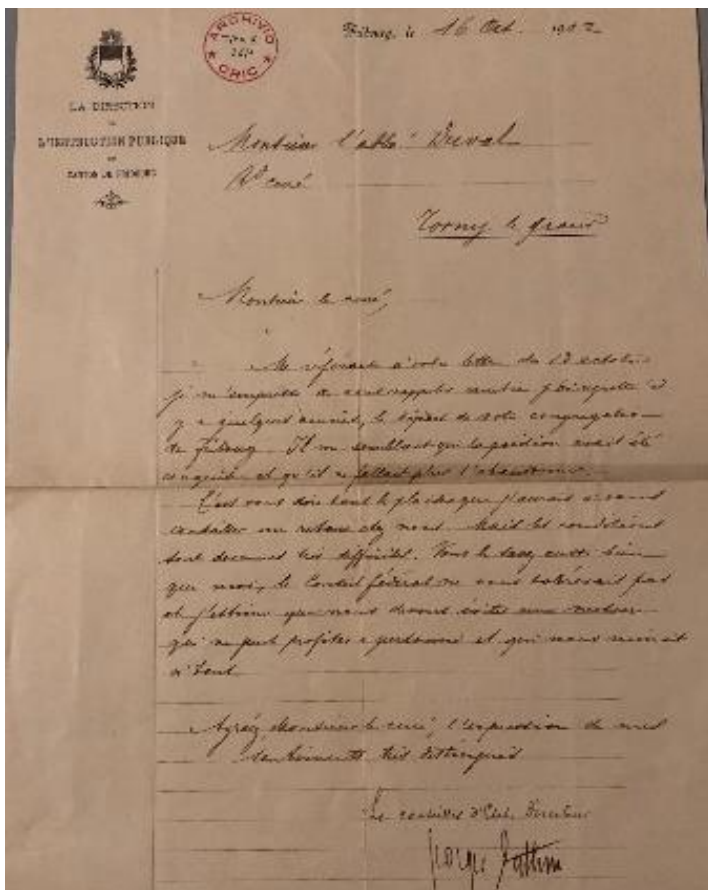 ARCHIVIO
CRIC
Fribourg, le 16 Oct. 1902
LA DIRECTION
DE
L'INSTRUCTION PUBLIQUE
DU
CANTON DE FRIBOURG
Monsieur l'abbé
Rd curé
Torny le grand
Monsieur le curé,
Me référant à votre lettre du 13 octobre
je m'empresse de vous rappeler combien j'ai regretté il
y a quelques années, le départ de votre congrégation
de fribourg. Il me semblait que la position avait été
conquise et qu'il ne fallait plus l'abandonner.
C'est vous dire tout le plaisir que j'aurais à vous
souhaiter un retour chez nous. Mais les conditions
sont devenues très difficiles. Vous le savez aussi bien
que moi, le Conseil fédéral ne vous tolérerait pas
et j'estime que nous devons éviter une mesure
qui ne peut profiter à personne et qui nous nuirait
à tous.
Agréez, Monsieur le curé, l'expression de mes
sentiments très distingués
Le conseiller d'Etat, Directeur
Georges Python